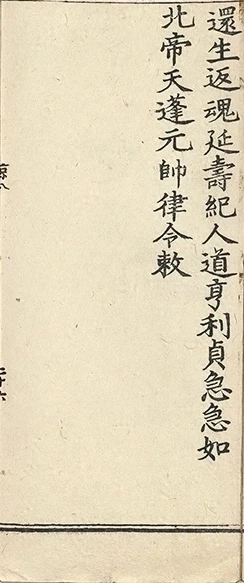 還生返魂延壽紀人道亨利貞急急如
北帝天蓬元帥律令敕